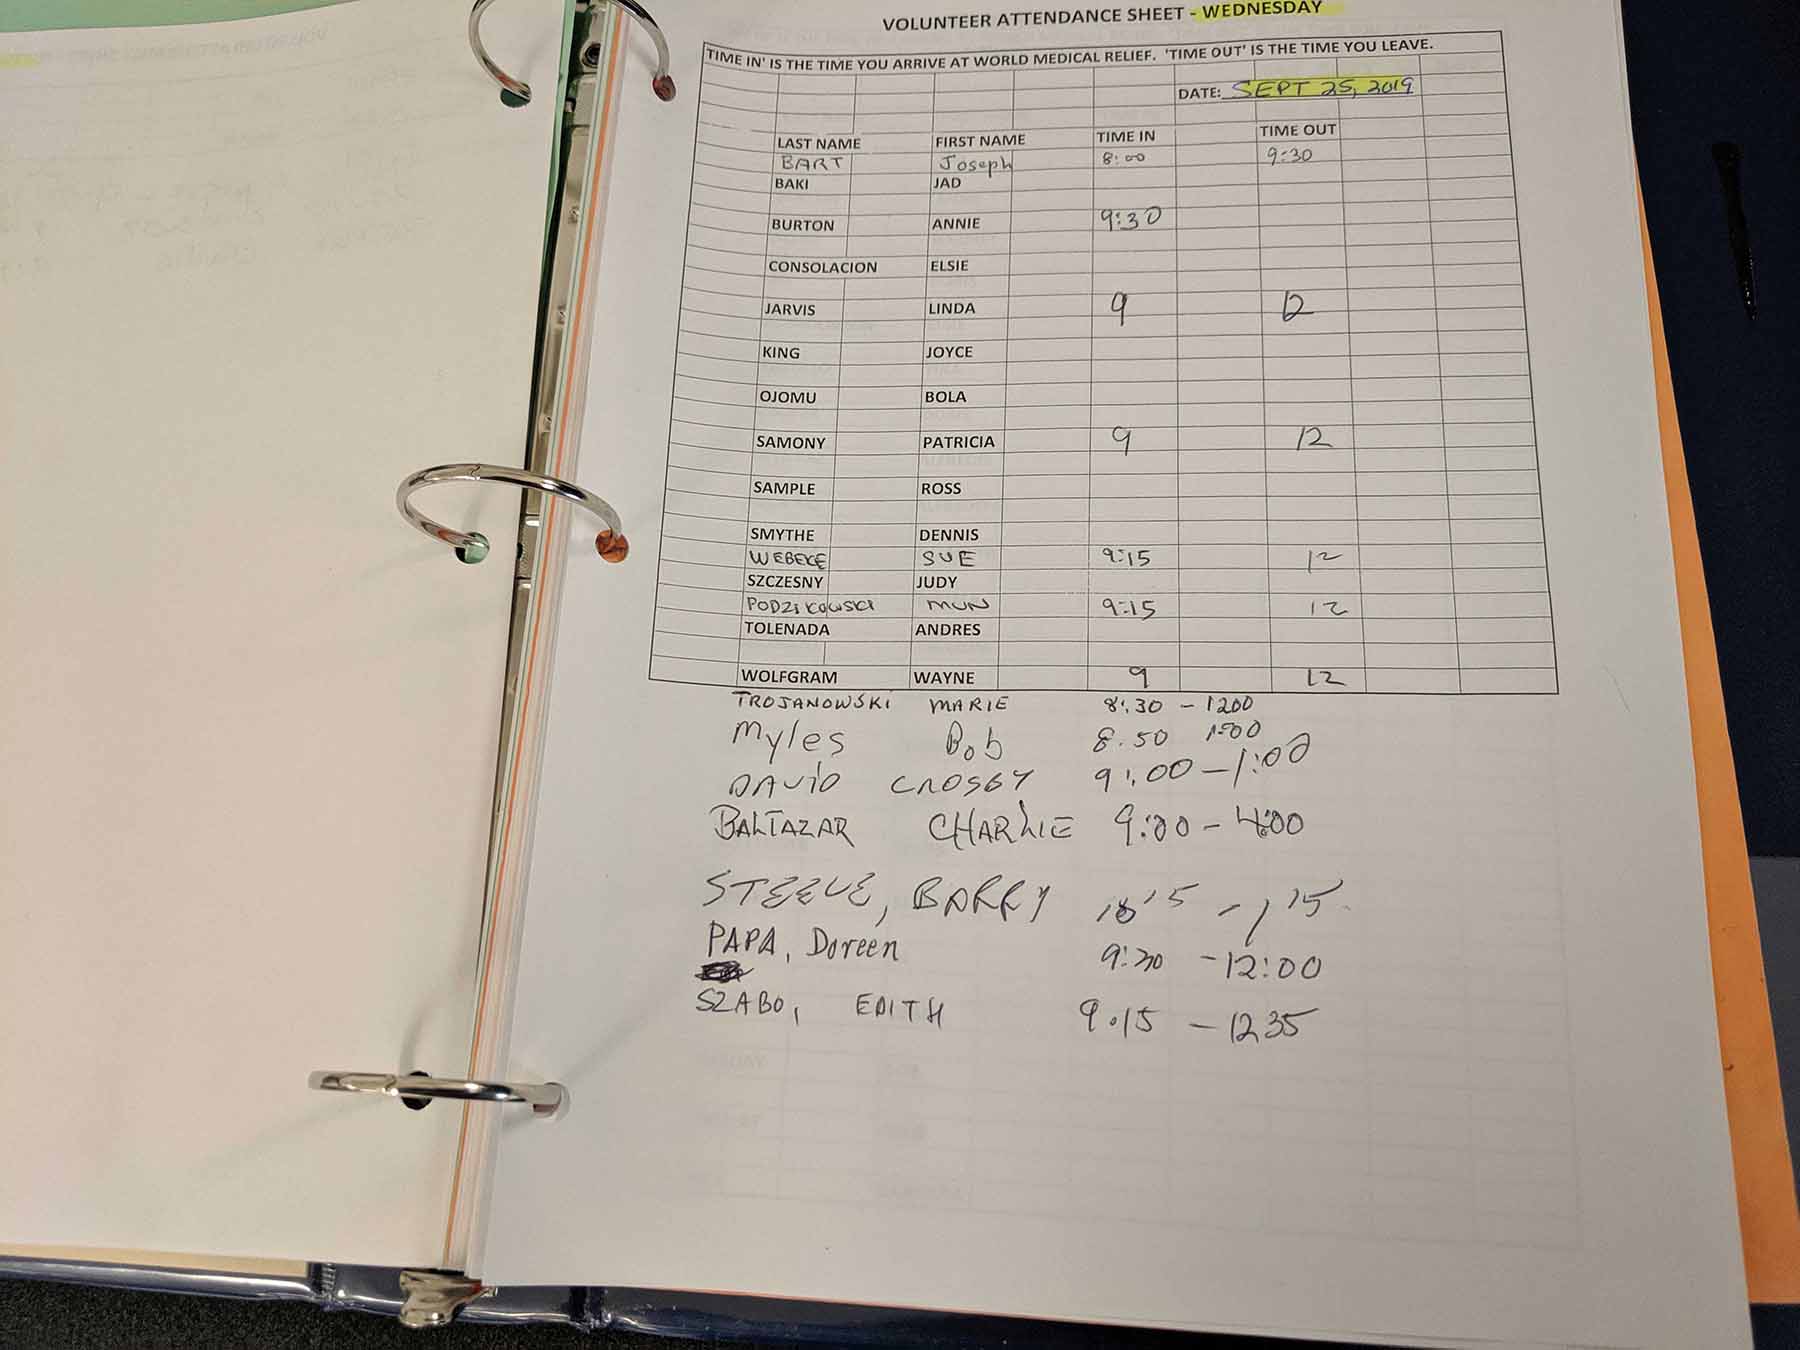 VOLUNTEER ATTENDANCE SHEET - WEDNESDAY
TIME IN' IS THE TIME YOU ARRIVE AT WORLD MEDICAL RELIEF. 'TIME OUT' IS THE TIME YOU LEAVE.
DATE: SEPT 25, 2019
LAST NAME FIRST NAME TIME IN TIME OUT
BART Joseph 8:00 9:30
BAKI JAD
BURTON ANNIE 9:30
CONSOLACION ELSIE
JARVIS LINDA 9 12
KING JOYCE
OJOMU BOLA
SAMONY PATRICIA 9 12
SAMPLE ROSS
SMYTHE DENNIS
WEBEKE SUE 9:15 12
SZCZESNY JUDY
PODZIKOWSKI MUN 9:15 12
TOLENADA ANDRES
WOLFGRAM WAYNE 9 12
TROJANOWSKI MARIE 8:30 - 1200
Myles Bob 8.50 1:00
DAVID CROSBY 9:00 - 1:00
BALTAZAR CHARLIE 9:00 - 4:00
STEEVE, BARRY 10 15 - 1 15
PAPA, Doreen - 12:00
SZABO, EDITH 9.15 - 1235